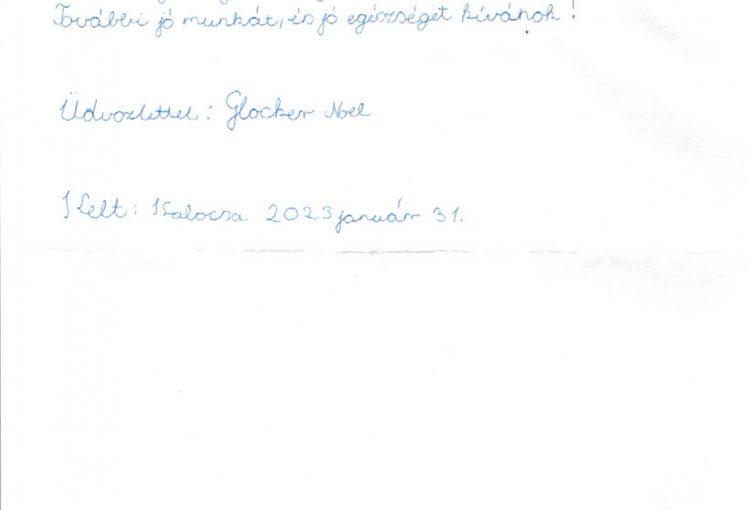 További jó munkát, és jó egészséget kívánok!
Üdvözlettel: Glocker Noel
Kelt: Kalocsa 2023 január 31.